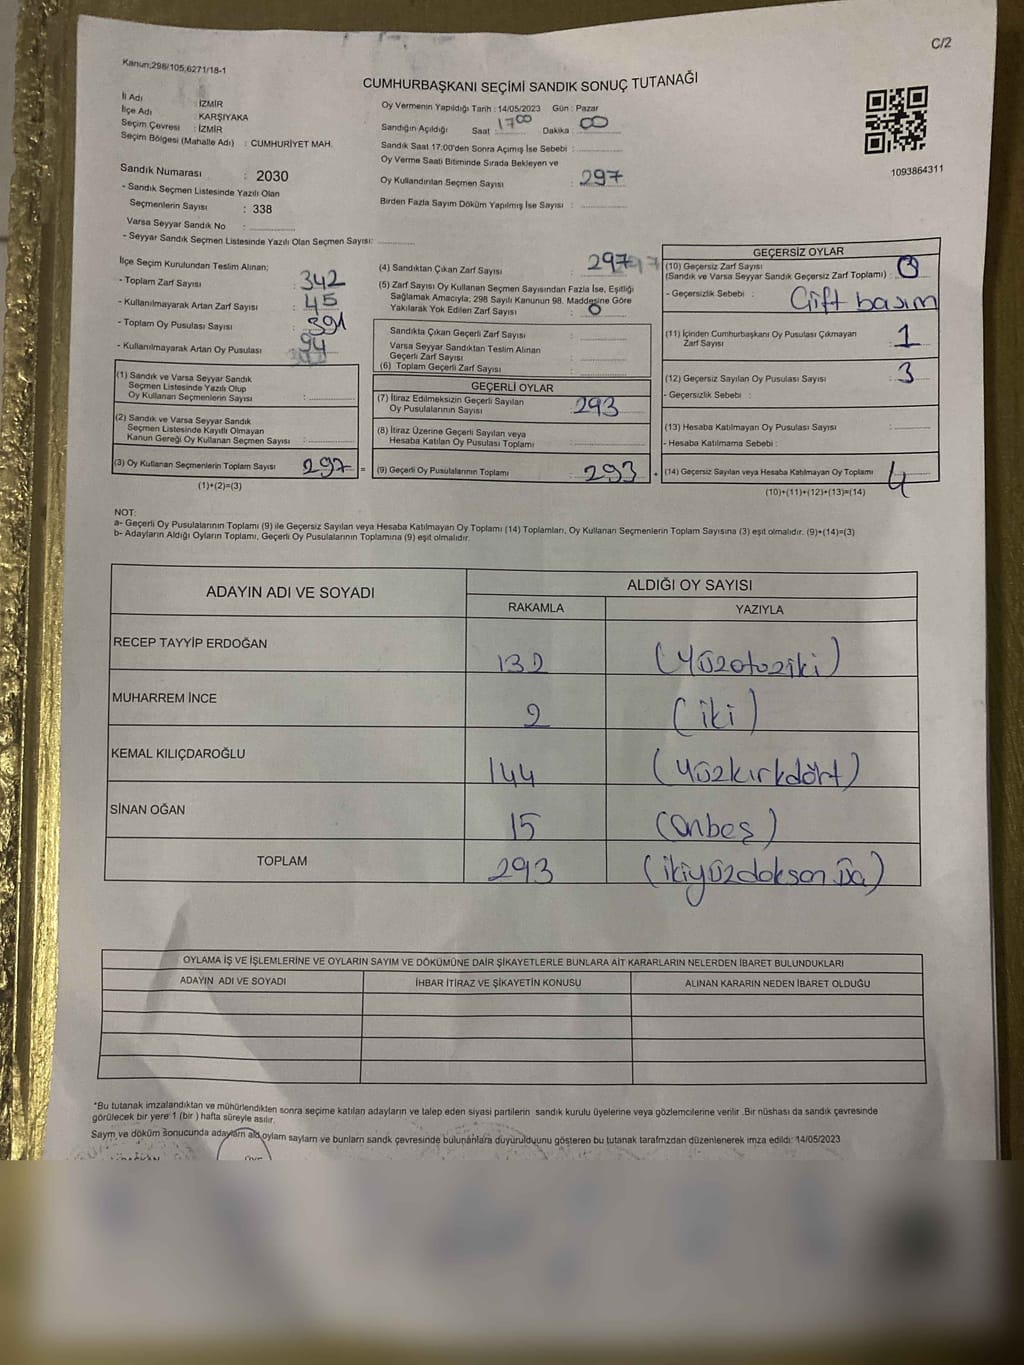 C/2
Kanun;298/105;6271/18-1
CUMHURBAŞKANI SEÇİMİ SANDIK SONUÇ TUTANAĞI
İl Adı : İZMİR
İlçe Adı : KARŞIYAKA
Seçim Çevresi : İZMİR
Seçim Bölgesi (Mahalle Adı) : CUMHURİYET MAH.
Oy Vermenin Yapıldığı Tarih : 14/05/2023 Gün : Pazar
Sandığın Açıldığı Saat : 17 00 Dakika : 00
Sandık Saat 17:00'den Sonra Açımış İse Sebebi :
Oy Verme Saati Bitiminde Sırada Bekleyen ve
Oy Kullandırılan Seçmen Sayısı : 297
Birden Fazla Sayım Döküm Yapılmış İse Sayısı :
1093864311
Sandık Numarası : 2030
- Sandık Seçmen Listesinde Yazılı Olan
Seçmenlerin Sayısı : 338
Varsa Seyyar Sandık No :
- Seyyar Sandık Seçmen Listesinde Yazılı Olan Seçmen Sayısı:
İlçe Seçim Kurulundan Teslim Alınan;
- Toplam Zarf Sayısı : 342
- Kullanılmayarak Artan Zarf Sayısı : 45
- Toplam Oy Pusulası Sayısı : 391
- Kullanılmayarak Artan Oy Pusulası : 94
(1) Sandık ve Varsa Seyyar Sandık
Seçmen Listesinde Yazılı Olup
Oy Kullanan Seçmenlerin Sayısı :
(2) Sandık ve Varsa Seyyar Sandık
Seçmen Listesinde Kayıtlı Olmayan
Kanun Gereği Oy Kullanan Seçmen Sayısı :
(3) Oy Kullanan Seçmenlerin Toplam Sayısı 297 =
(1)+(2)=(3)
(4) Sandıktan Çıkan Zarf Sayısı : 297
(5) Zarf Sayısı Oy Kullanan Seçmen Sayısından Fazla İse, Eşitliği
Sağlamak Amacıyla; 298 Sayılı Kanunun 98. Maddesine Göre
Yakılarak Yok Edilen Zarf Sayısı : 0
Sandıkta Çıkan Geçerli Zarf Sayısı :
Varsa Seyyar Sandıktan Teslim Alınan
Geçerli Zarf Sayısı :
(6) Toplam Geçerli Zarf Sayısı :
GEÇERLİ OYLAR
(7) İtiraz Edilmeksizin Geçerli Sayılan
Oy Pusulalarının Sayısı : 293
(8) İtiraz Üzerine Geçerli Sayılan veya
Hesaba Katılan Oy Pusulası Toplamı :
(9) Geçerli Oy Pusulalarının Toplamı : 293 +
GEÇERSİZ OYLAR
(10) Geçersiz Zarf Sayısı
(Sandık ve Varsa Seyyar Sandık Geçersiz Zarf Toplamı) :
- Geçersizlik Sebebi : Çift basım
(11) İçinden Cumhurbaşkanı Oy Pusulası Çıkmayan
Zarf Sayısı : 1
(12) Geçersiz Sayılan Oy Pusulası Sayısı : 3
- Geçersizlik Sebebi :
(13) Hesaba Katılmayan Oy Pusulası Sayısı :
- Hesaba Katılmama Sebebi :
(14) Geçersiz Sayılan veya Hesaba Katılmayan Oy Toplamı : 4
(10)+(11)+(12)+(13)=(14)
NOT:
a- Geçerli Oy Pusulalarının Toplamı (9) ile Geçersiz Sayılan veya Hesaba Katılmayan Oy Toplamı (14) Toplamları, Oy Kullanan Seçmenlerin Toplam Sayısına (3) eşit olmalıdır. (9)+(14)=(3)
b- Adayların Aldığı Oyların Toplamı, Geçerli Oy Pusulalarının Toplamına (9) eşit olmalıdır.
ADAYIN ADI VE SOYADI ALDIĞI OY SAYISI
RAKAMLA YAZIYLA
RECEP TAYYİP ERDOĞAN 132 (Yüzotoziki)
MUHARREM İNCE 2 (iki)
KEMAL KILIÇDAROĞLU 144 (yüzkırkdört)
SİNAN OĞAN 15 (onbeş)
TOPLAM 293 (ikiyüzdokson üç)
OYLAMA İŞ VE İŞLEMLERİNE VE OYLARIN SAYIM VE DÖKÜMÜNE DAİR ŞİKAYETLERLE BUNLARA AİT KARARLARIN NELERDEN İBARET BULUNDUKLARI
ADAYIN ADI VE SOYADI İHBAR İTİRAZ VE ŞİKAYETİN KONUSU ALINAN KARARIN NEDEN İBARET OLDUĞU
*Bu tutanak imzalandıktan ve mühürlendikten sonra seçime katılan adayların ve talep eden siyasi partilerin sandık kurulu üyelerine veya gözlemcilerine verilir .Bir nüshası da sandık çevresinde
görülecek bir yere 1 (bir ) hafta süreyle asılır.
Sayım ve döküm sonucunda adayların aldıkları oyların sayıları ve bunların sandık çevresinde bulunanlara duyurulduğunu gösteren bu tutanak tarafımızdan düzenlenerek imza edildi: 14/05/2023